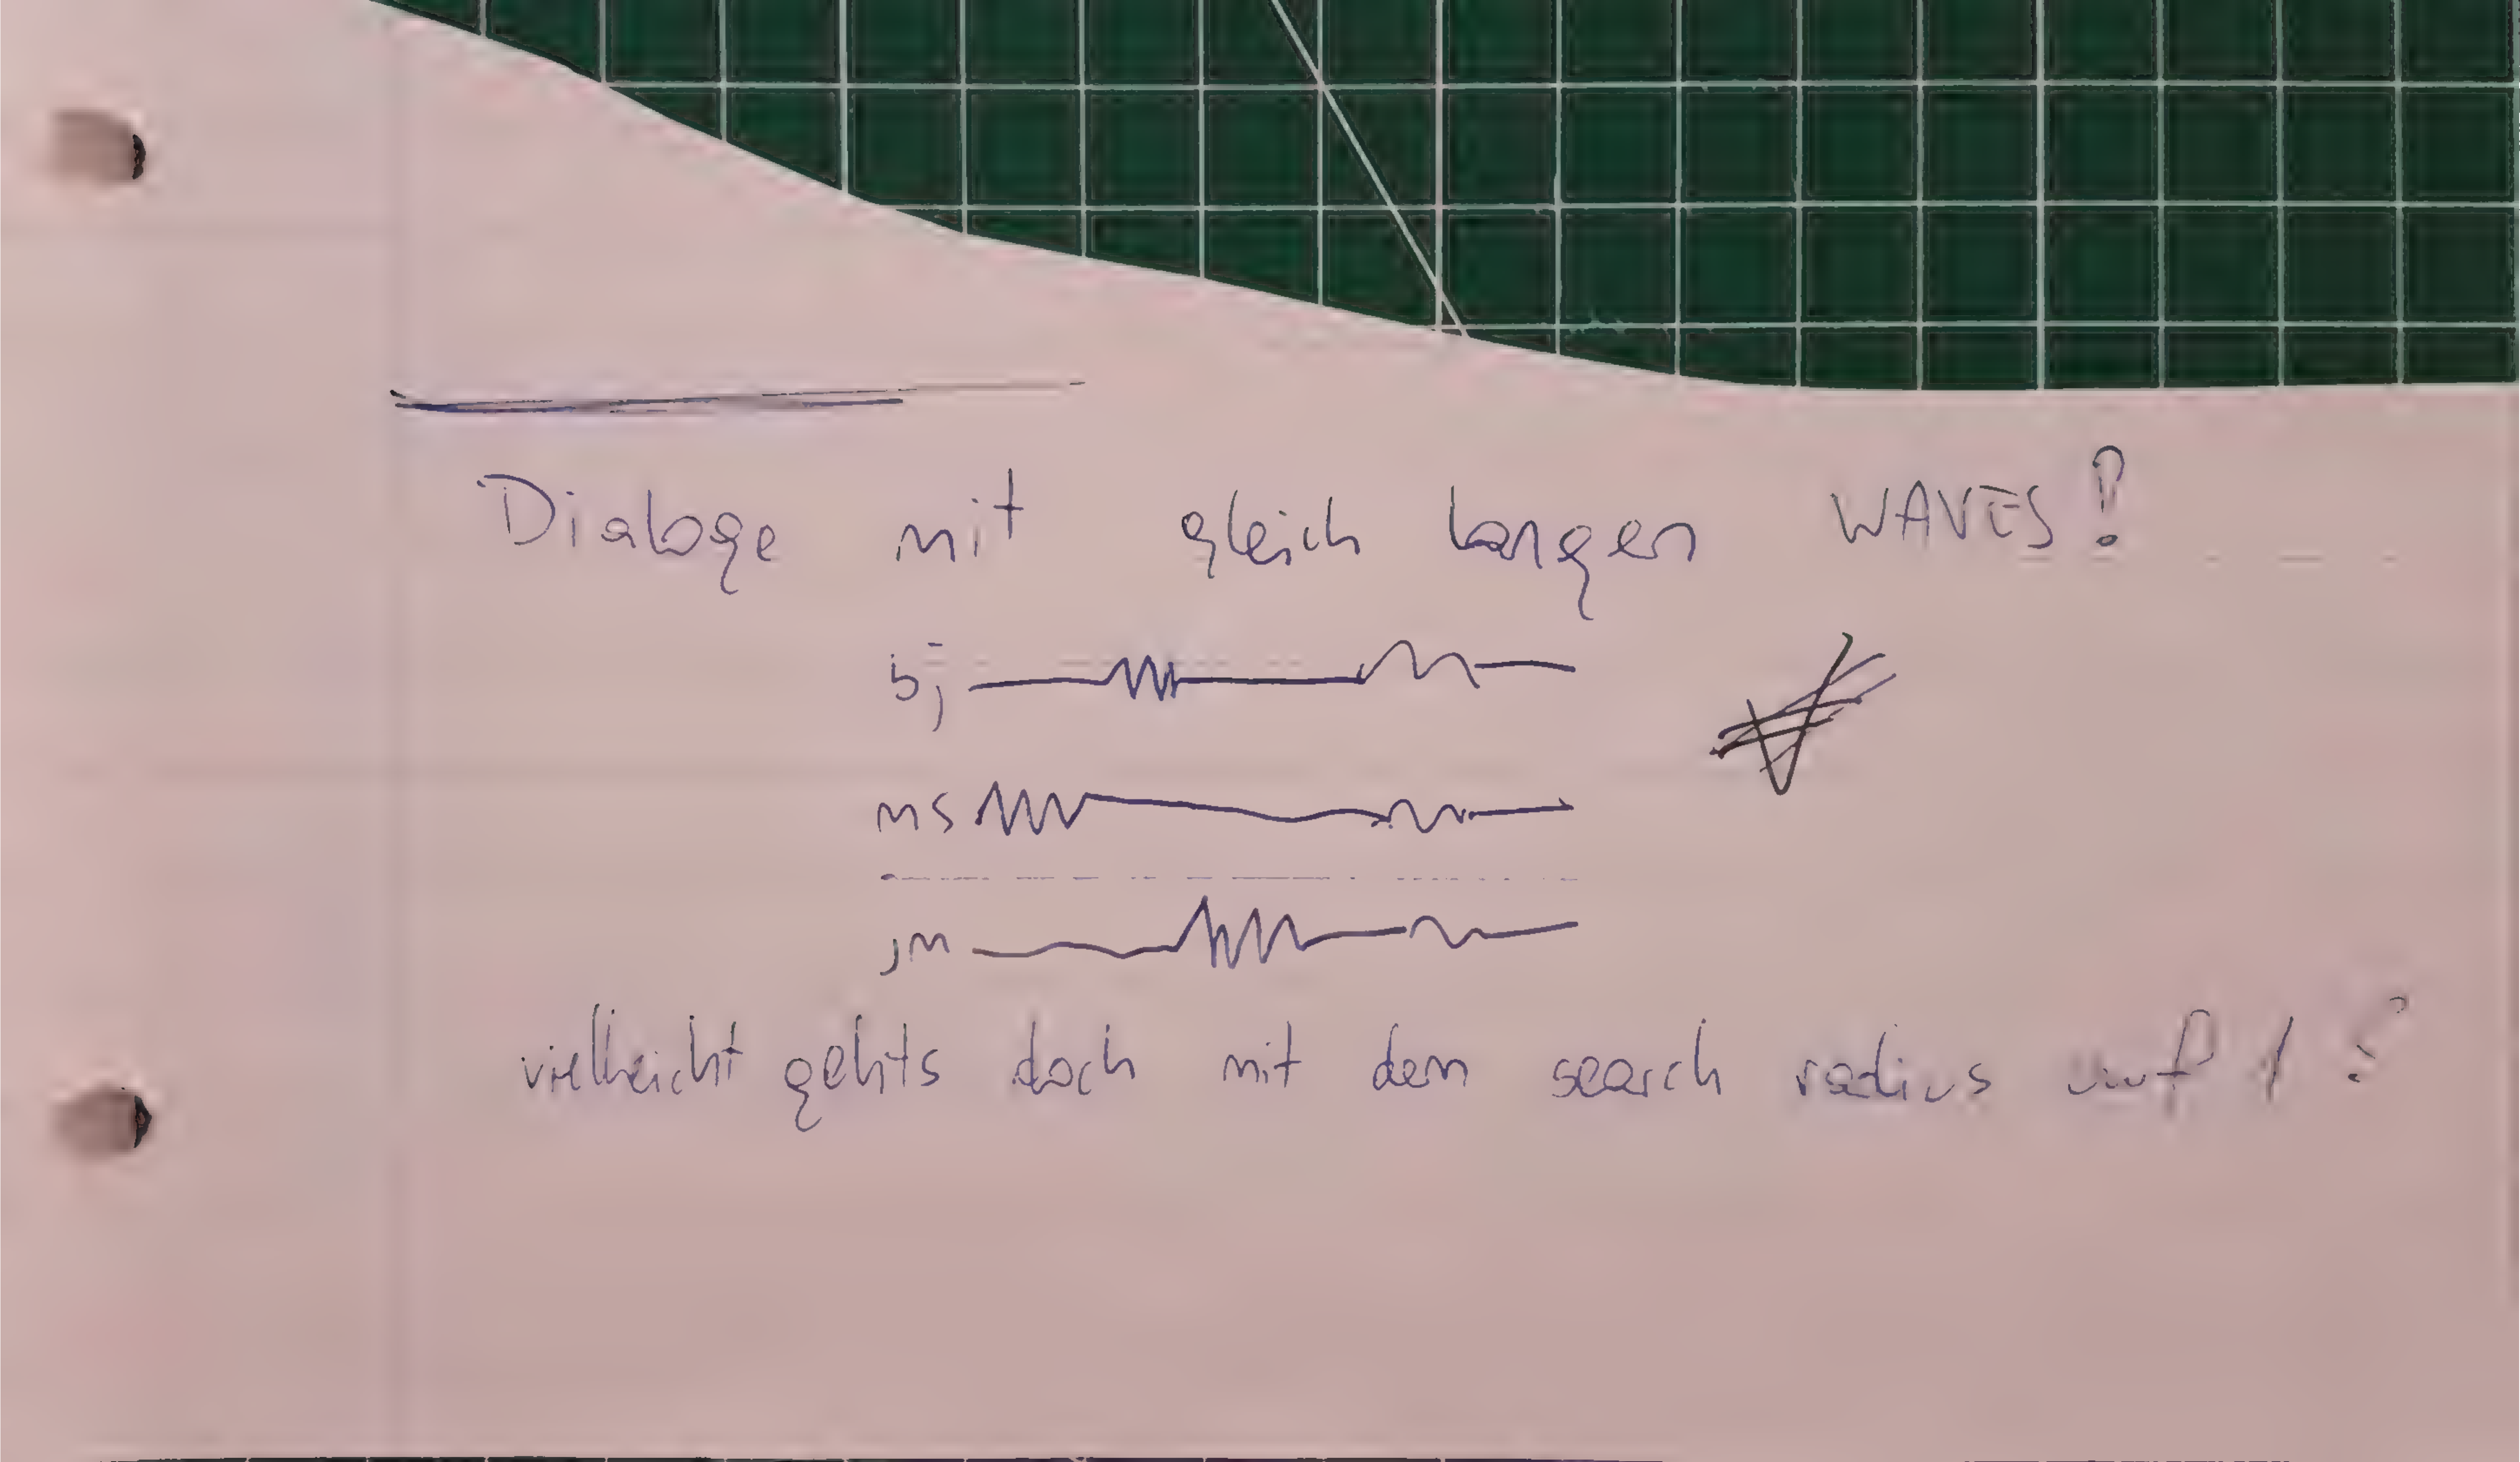 Dialoge mit gleich langen WAVES?
bj
ms
jm
vielleicht gehts doch mit dem search radius auf 1?